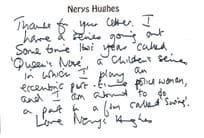 Nerys Hughes
Thanks for your letter. I
have a series going out
some time this year called
'Queen's Nose', a children's series,
in which I play an
eccentric part-time police woman,
and I am about to do
a part in a film called 'Swing'.
Love Nerys Hughes